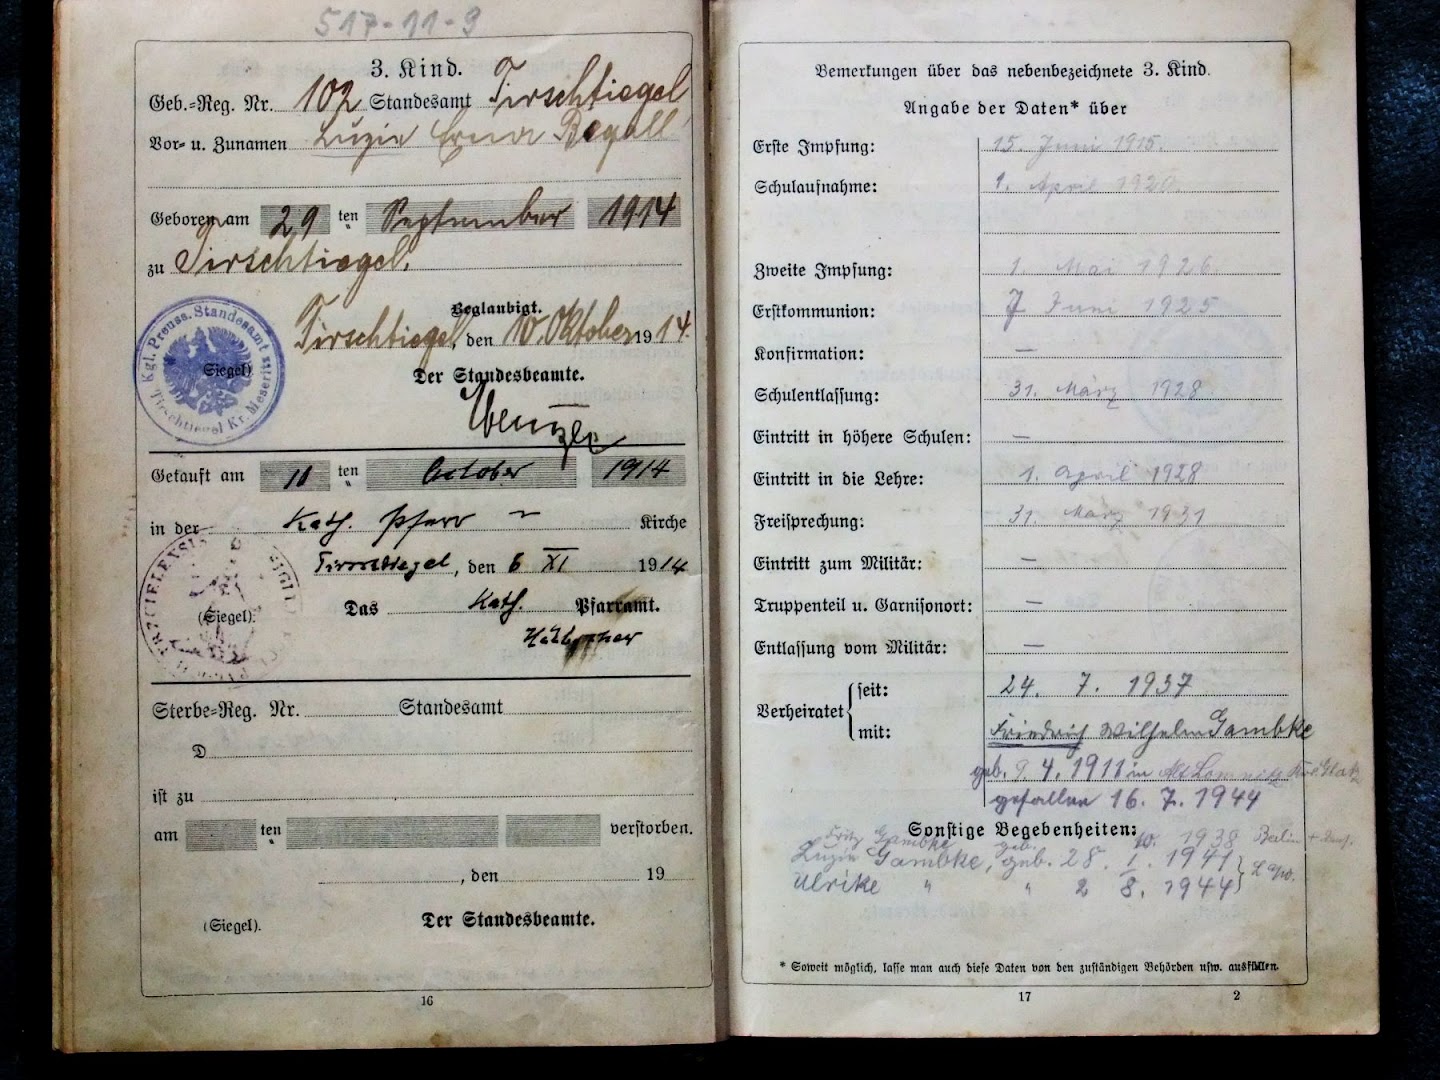 517-11-9
3. Kind.
Geb.=Reg. Nr. 102 Standesamt Tirschtiegel
Vor= u. Zunamen Luzie Erna Begall
Geboren am 29 ten September 1914
zu Tirschtiegel.
Beglaubigt.
Tirschtiegel, den 10. Oktober 1914.
Kgl. Preuss. Standesamt Tirschtiegel Kr. Meseritz
(Siegel)
Der Standesbeamte.
Getauft am 11 ten October 1914
in der Kath. Pfarr Kirche
Tirschtiegel, den 6 XI 1914
(Siegel).
Das Kath. Pfarramt.
Sterbe=Reg. Nr. Standesamt
D
ist zu
am ten verstorben.
, den 19
(Siegel).
Der Standesbeamte.
16
Bemerkungen über das nebenbezeichnete 3. Kind.
Angabe der Daten* über
Erste Impfung: 15. Juni 1915.
Schulaufnahme: 1. April 1920.
Zweite Impfung: 1. Mai 1926
Erstkommunion: 7 Juni 1925
Konfirmation: —
Schulentlassung: 31. März 1928
Eintritt in höhere Schulen: —
Eintritt in die Lehre: 1. April 1928
Freisprechung: 31. März 1931
Eintritt zum Militär: —
Truppenteil u. Garnisonort: —
Entlassung vom Militär: —
Verheiratet seit: 24. 7. 1937
mit: Friedrich Wilhelm Gambke
geb. 9. 4. 1911 in Alt Lomnitz Kr. Glatz
gefallen 16. 7. 1944
Sonstige Begebenheiten:
Fritz Gambke geb. 1938 Berlin +
Luzie Gambke, geb. 28. 1. 1941
Ulrike " " 2 8. 1944
* Soweit möglich, lasse man auch diese Daten von den zuständigen Behörden usw. ausfüllen.
17 2